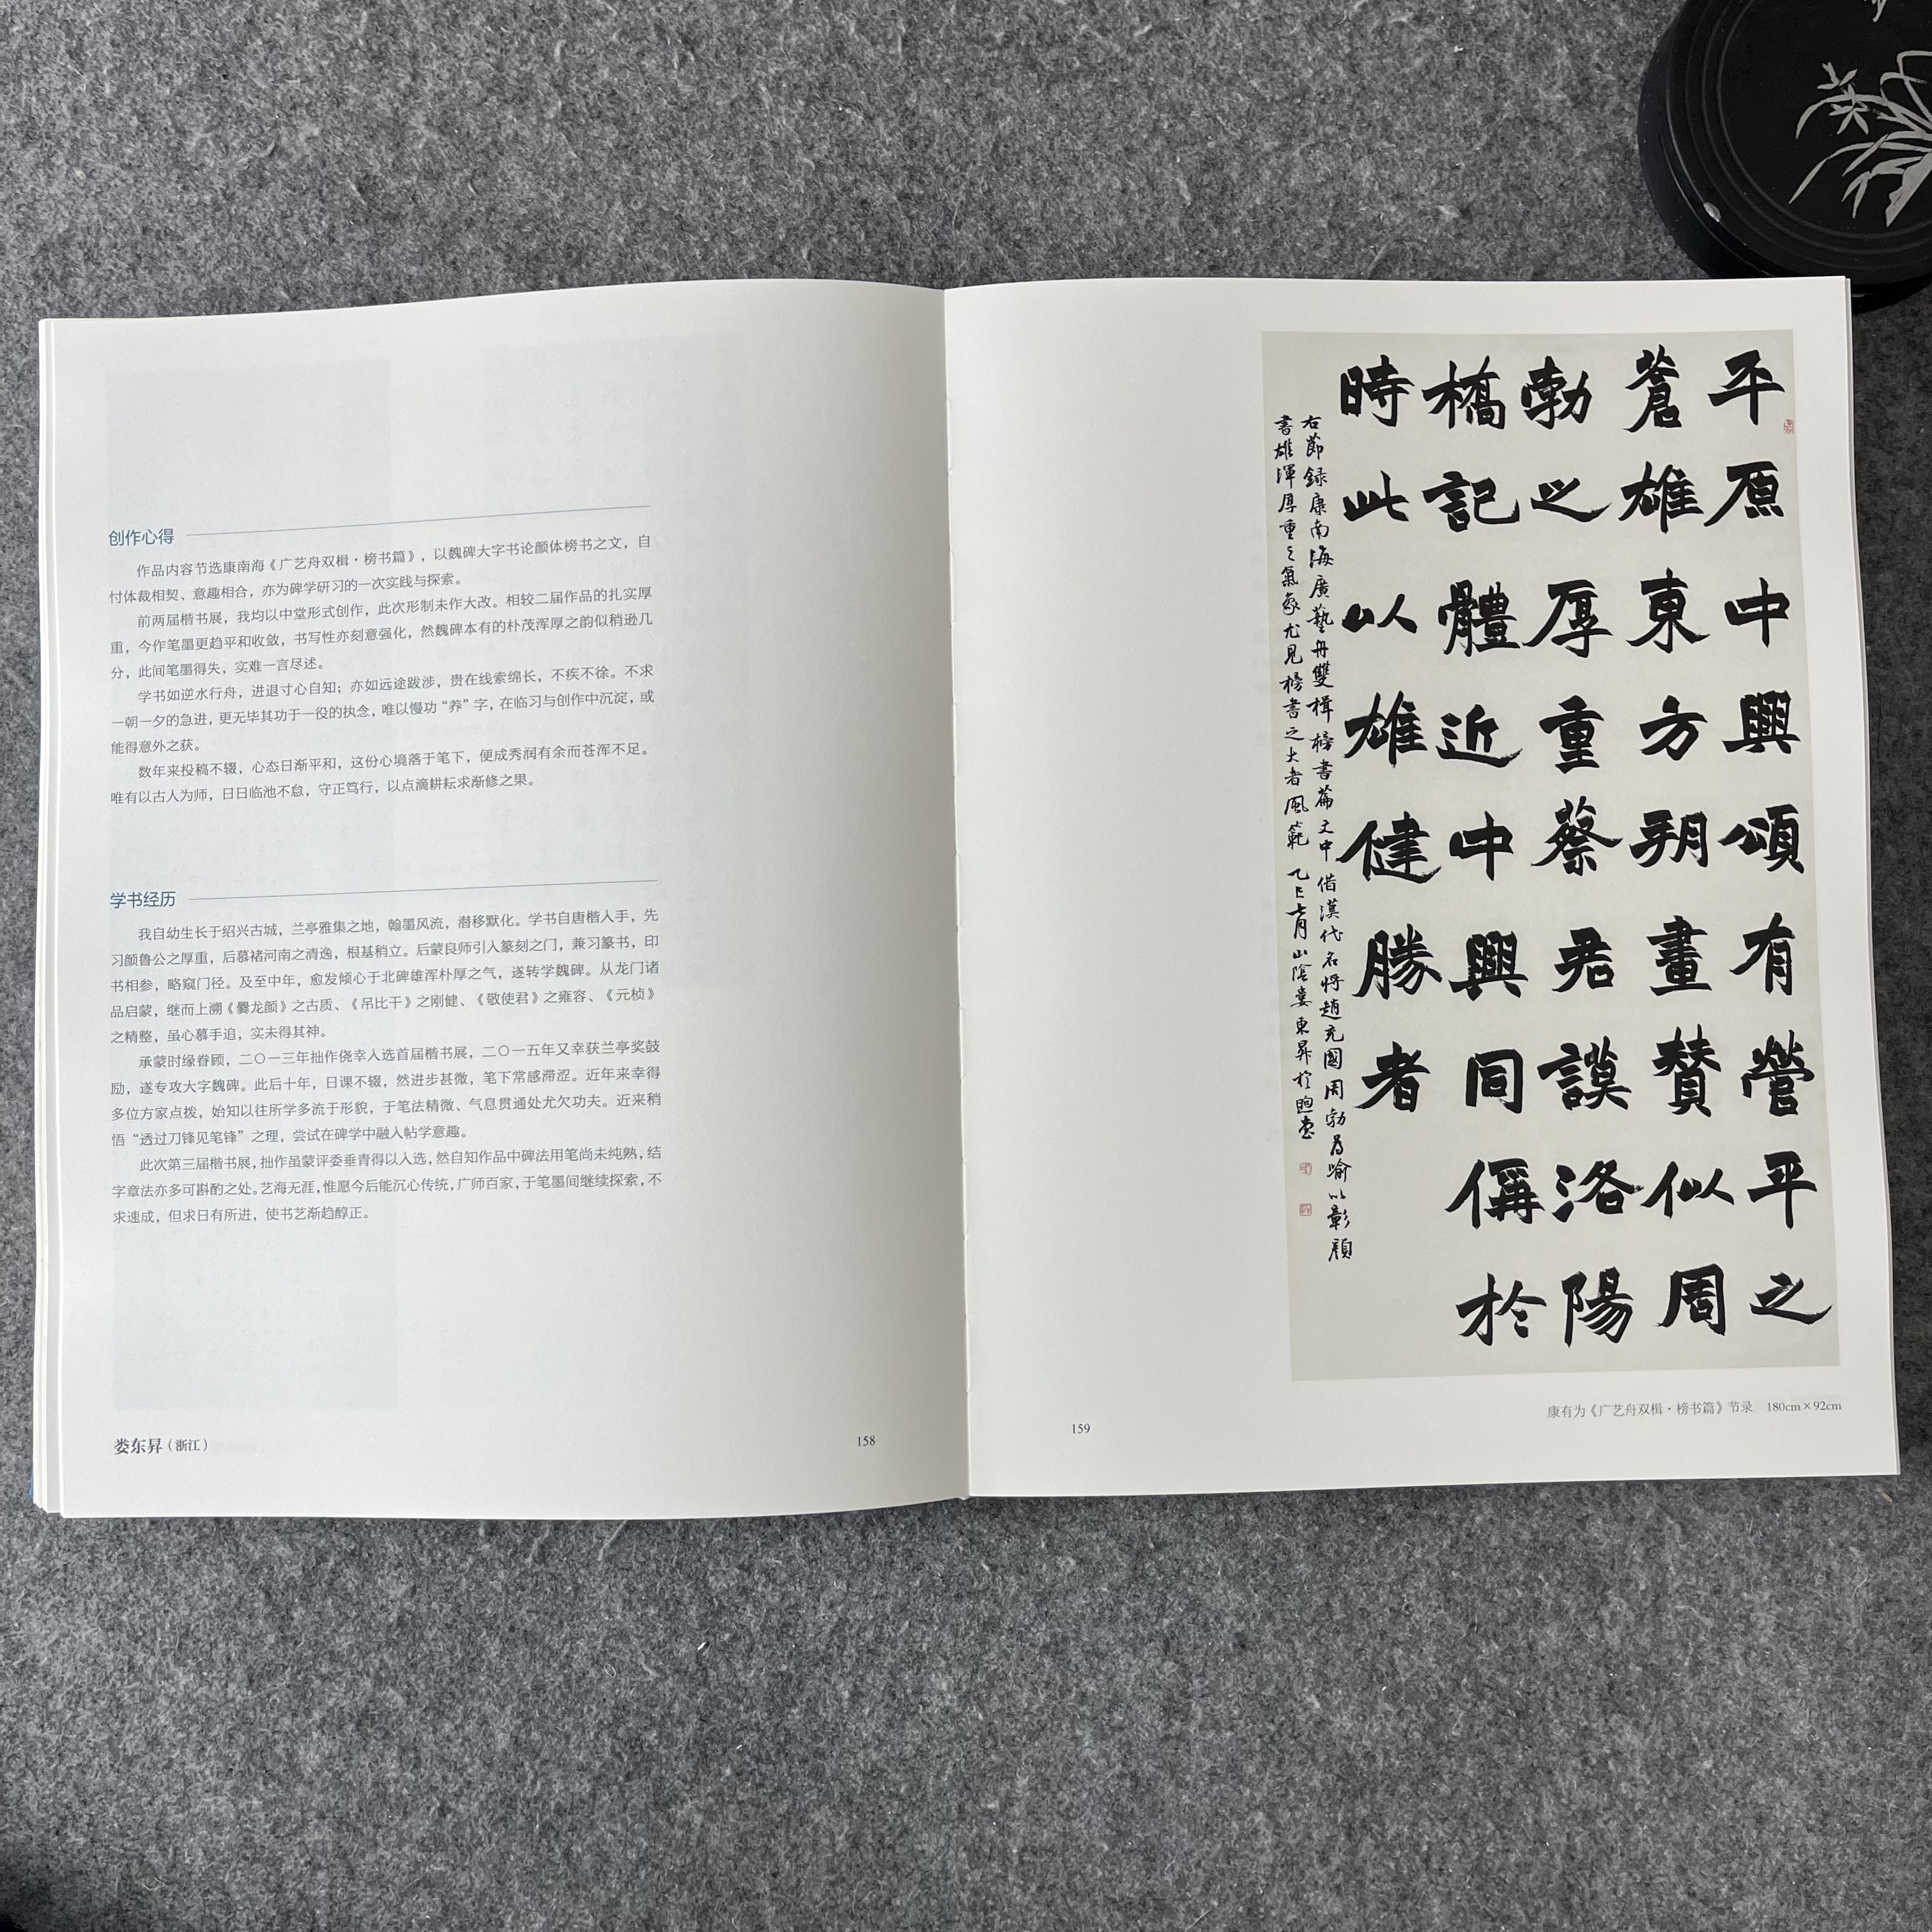 创作心得
作品内容节选康南海《广艺舟双楫·榜书篇》，以魏碑大字书论颜体榜书之文，自
忖体裁相契、意趣相合，亦为碑学研习的一次实践与探索。
前两届楷书展，我均以中堂形式创作，此次形制未作大改。相较二届作品的扎实厚
重，今作笔墨更趋平和收敛，书写性亦刻意强化，然魏碑本有的朴茂浑厚之韵似稍逊几
分，此间笔墨得失，实难一言尽述。
学书如逆水行舟，进退寸心自知；亦如远途跋涉，贵在线索绵长，不疾不徐。不求
一朝一夕的急进，更无毕其功于一役的执念，唯以慢功“养”字，在临习与创作中沉淀，或
能得意外之获。
数年来投稿不辍，心态日渐平和，这份心境落于笔下，便成秀润有余而苍浑不足。
唯有以古人为师，日日临池不怠，守正笃行，以点滴耕耘求渐修之果。
学书经历
我自幼生长于绍兴古城，兰亭雅集之地，翰墨风流，潜移默化。学书自唐楷入手，先
习颜鲁公之厚重，后慕褚河南之清逸，根基稍立。后蒙良师引入篆刻之门，兼习篆书，印
书相参，略窥门径。及至中年，愈发倾心于北碑雄浑朴厚之气，遂转学魏碑。从龙门诸
品启蒙，继而上溯《爨龙颜》之古质、《吊比干》之刚健、《敬使君》之雍容、《元桢》
之精整，虽心慕手追，实未得其神。
承蒙时缘眷顾，二〇一三年拙作侥幸入选首届楷书展，二〇一五年又幸获兰亭奖鼓
励，遂专攻大字魏碑。此后十年，日课不辍，然进步甚微，笔下常感滞涩。近年来幸得
多位方家点拨，始知以往所学多流于形貌，于笔法精微、气息贯通处尤欠功夫。近来稍
悟“透过刀锋见笔锋”之理，尝试在碑学中融入帖学意趣。
此次第三届楷书展，拙作虽蒙评委垂青得以入选，然自知作品中碑法用笔尚未纯熟，结
字章法亦多可斟酌之处。艺海无涯，惟愿今后能沉心传统，广师百家，于笔墨间继续探索，不
求速成，但求日有所进，使书艺渐趋醇正。
娄东昇（浙江）
158
平原中興頌有營平之
蒼雄東方朔畫贊似周
勃之厚重蔡君謨洛陽
橋記體近中興同偁於
時此以雄健勝者
右節録康南海廣藝舟雙楫榜書篇文中借漢代名將趙充國周勃為喻以彰顏
書雄渾厚重之氣象尤見榜書之大者風範 乙巳七月山陰婁東昇於
康有为《广艺舟双楫·榜书篇》节录 180cm×92cm
159